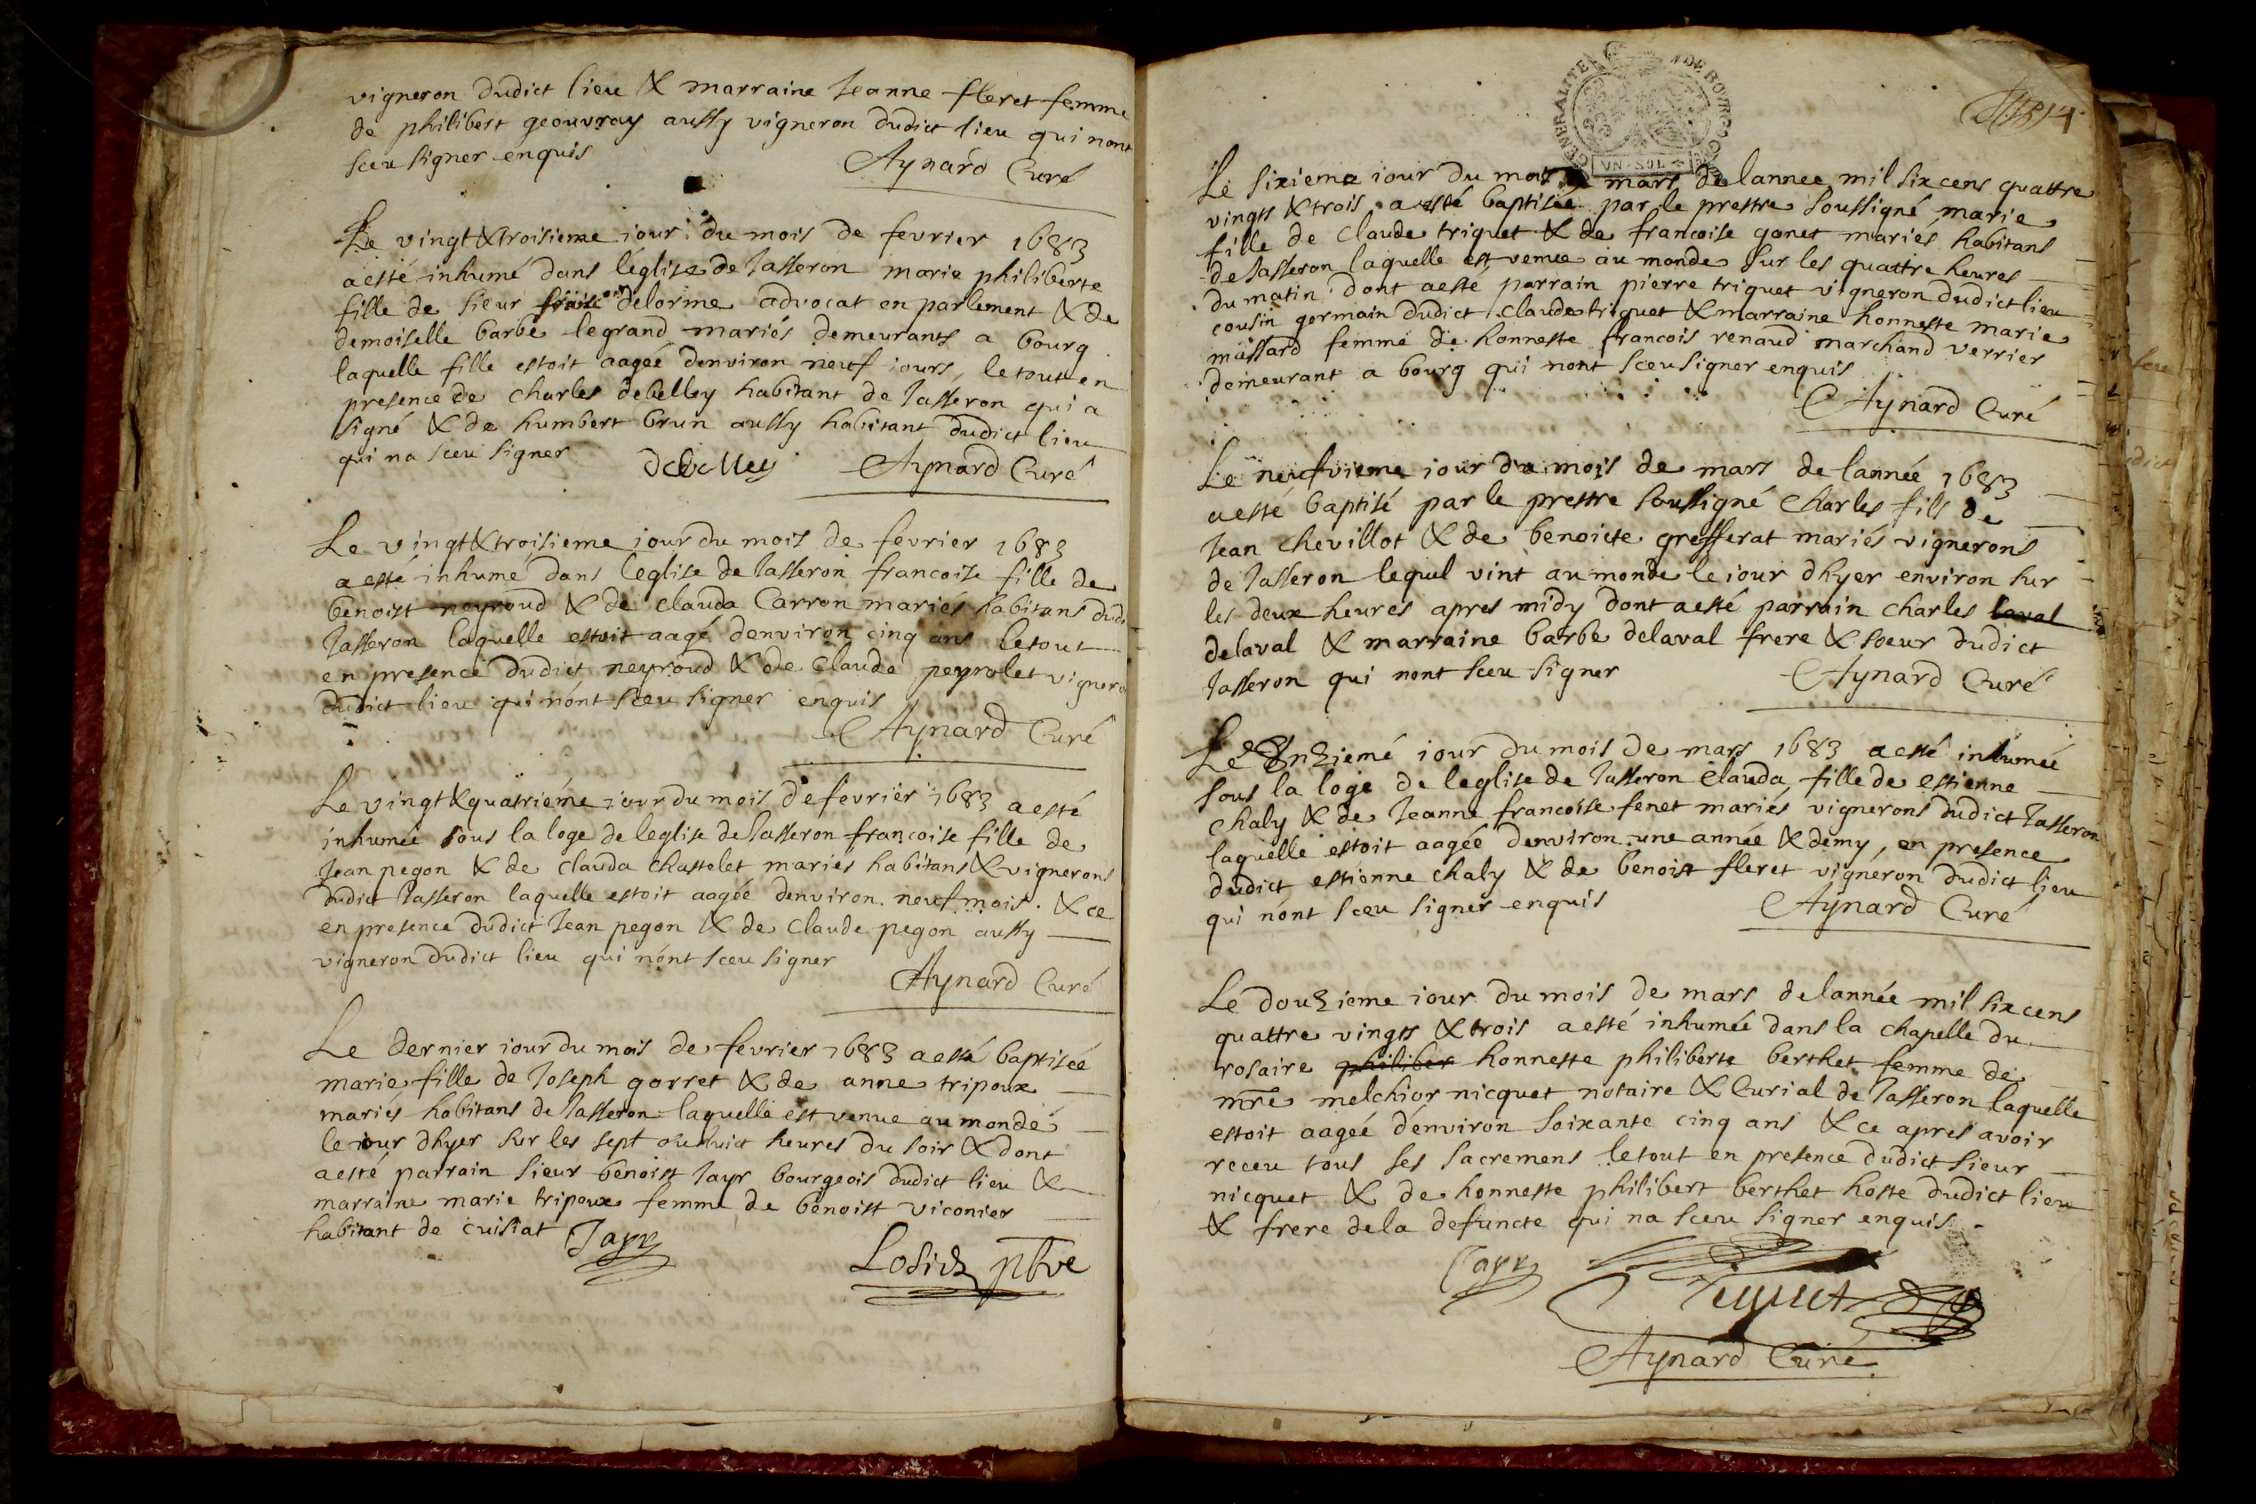 vigneron dudict lieu & marraine Jeanne fleret femme
de philibert geouvray aussy vigneron dudict lieu qui nont
sceu signer enquis
Aynard Curé
Le vingt&troisieme iour du mois de fevrier 1683
a esté inhumé dans léglise de Jasseron marie philiberte
fille de sieur delorme advocat en parlement & de
demoiselle barbe legrand mariés demeurants a bourg
laquelle fille estoit aageé denviron neuf iours, le tout en
presence de charles debelley habitant de Jasseron qui a
signé & de humbert brun aussy habitant dudict lieu
qui na sceu signer
debelley Aynard Curé
Le vingt&troisieme iour du mois de fevrier 1683
a esté inhumé dans leglise de Jasseron francoise fille de
benoist neyroud & de clauda Carron mariés habitans dud
Jasseron laquelle estoit aagé denviron cinq ans le tout
en presence dudict neyroud & de claude peyrolet vignero
dudict lieu qui nónt sceu signer enquis
Aynard Curé
Le vingt&quatriéme iour du mois de fevrier 1683 a esté
inhumée sous la loge de leglise de Jasseron françoise fille de
Jean pegon & de clauda chastelet mariés habitans & vignerons
dudict Jasseron laquelle estoit aagéé denviron neuf mois. & ce
en presence dudict Jean pegon & de Claude pegon aussy
vigneron dudict lieu qui nónt sceu signer
Aynard Curé
Le dernier iour du mois de fevrier 1683 a esté baptiséé
marie fille de Joseph gorret & de anne tripoux
mariés habitans de Jasseron laquelle est venue au monde
le iour dhyer sur les sept ou huict heures du soir & dont
a esté parrain sieur benoist Jayr bourgeois dudict lieu &
marraine marie tripoux femme de benoist viconier
habitant de cuisiat Jayr
ptbre
GENERALITE DE BOURGOGNE
UN SOL
Le sixieme iour du mois mars de lannee mil six cens quattre
vingts & trois a esté baptisée par le prestre soussigné marie
fille de claude triquet & de francoise gonet mariés habitans
de Jasseron laquelle est venue au monde sur les quattre heures
du matin dont a esté parrain pierre triquet vigneron dudict lieu
cousin germain dudict claude triquet & marraine honneste marie
missard femme de honneste francois renaud marchand verrier
demeurant a bourg qui nont sceu signer enquis
Aynard Curé
Le neufvieme iour du mois de mars de lannéé 1683
a esté baptisé par le prestre soussigné charles fils de
Jean chevillot & de benoicte grefferat mariés vignerons
de Jasseron lequel vint au monde le iour dhyer environ sur
les deux heures apres midy dont a esté parrain charles laval
delaval & marraine barbe delaval frere & soeur dudict
Jasseron qui nont sceu signer
Aynard Curé
Le Onziemé iour du mois de mars 1683 a esté inhumée
sous la loge de leglise de Jasseron clauda fille de estienne
chaly & de Jeanne francoise fenet mariés vignerons dudict Jasseron
laquelle estoit aagéé denviron une année & demy, en presence
dudict estienne chaly & de benoist fleret vigneron dudict lieu
qui nónt sceu signer enquis
Aynard Curé
Le douzieme iour du mois de mars de lannée mil six cens
quattre vingts & trois a esté inhumée dans la chapelle du
rosaire philiber honneste philiberte berthet femme de
mre melchior nicquet notaire & Curial de Jasseron laquelle
estoit aageé dénviron soixante cinq ans & ce apres avoir
receu tous ses sacremens le tout en presence dudict sieur
nicquet & de honneste philibert berthet hoste dudict lieu
& frere de la defuncte qui na sceu signer enquis
Jayr
Aynard Curé